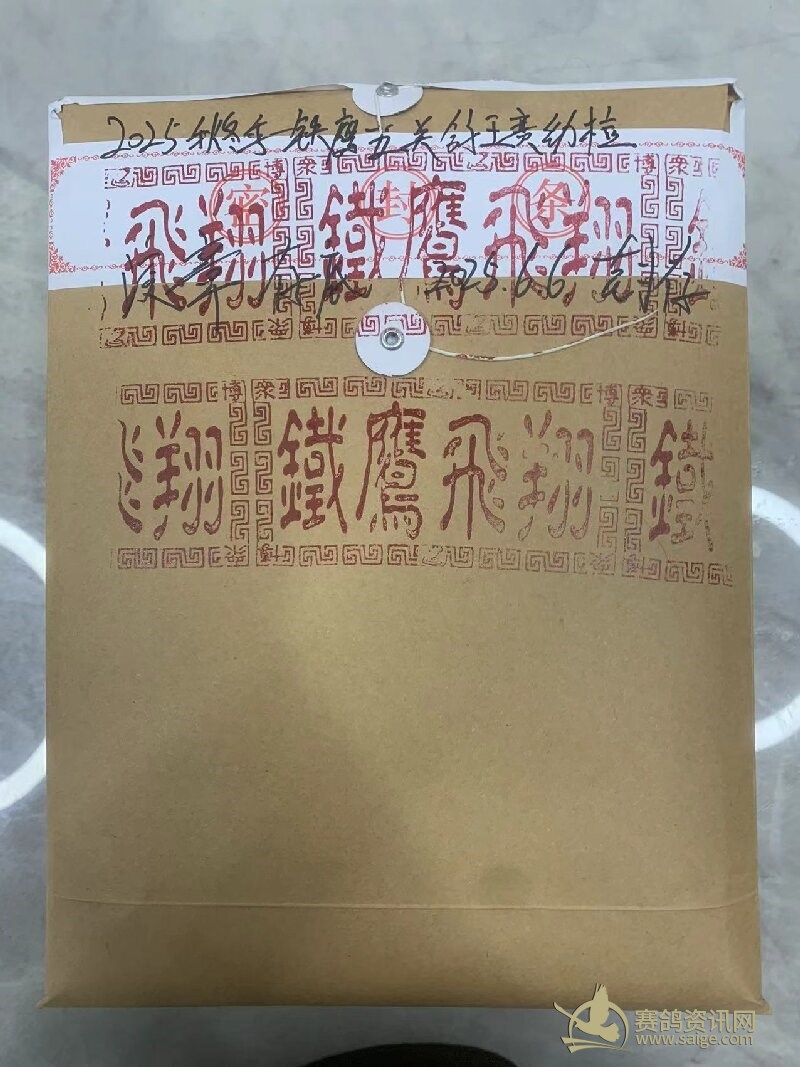 2025秋冬季铁鹰五关鸽王赛幼棚
博 衆
密 封 条
飛翔 鐵鷹飛翔
2025.6.6
衆 博
博 衆 博 衆
翔 鐵鷹飛翔 鐵
衆 博 衆 博
赛鸽资讯网
www.saige.com